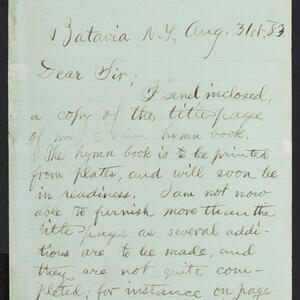 Batavia N.Y., Aug. 31st-83
Dear Sir;
I send inclosed,
a copy of the title page
of my Indian hymn book.
The hymn book is to be printed
from plates, and will soon be
in readiness. I am not now
able to furnish more than the
title page as several addi-
tions are to be made, and
they are not quite com-
pleted; for instance on page